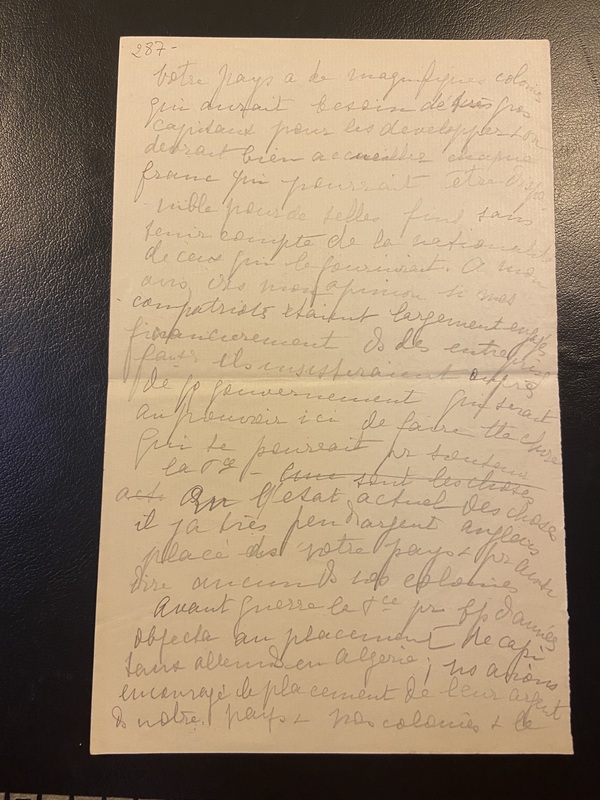 287-
Votre pays a de magnifiques colonies
qui aurait besoin de très gros
capitaux pour les developper & on
devrait bien accueillir chaque
franc qui pourrait être dispo-
nible pour de telles fins sans
tenir compte de la nationalité
de ceux qui le fourniront. A mon
avis, mon opinion si mes
compatriotes étaient largement engagés
financièrement ds des entreprises
frses ils insisteraient auprès
de gouvernement qui serait
au pouvoir ici de faire tte chose
qui se pourrait pr soutenir
la Fce - sont les choses
acte En l'état actuel des choses
il y a très peu d'argent anglais
placé ds votre pays & pr ainsi
dire aucun ds vos colonies
Avant guerre la Fce pr bp d'années
objecta au placement de capi
taux allemds en Algérie; ns avions
encouragé le placement de leur argent
ds notre pays & nos colonies & le